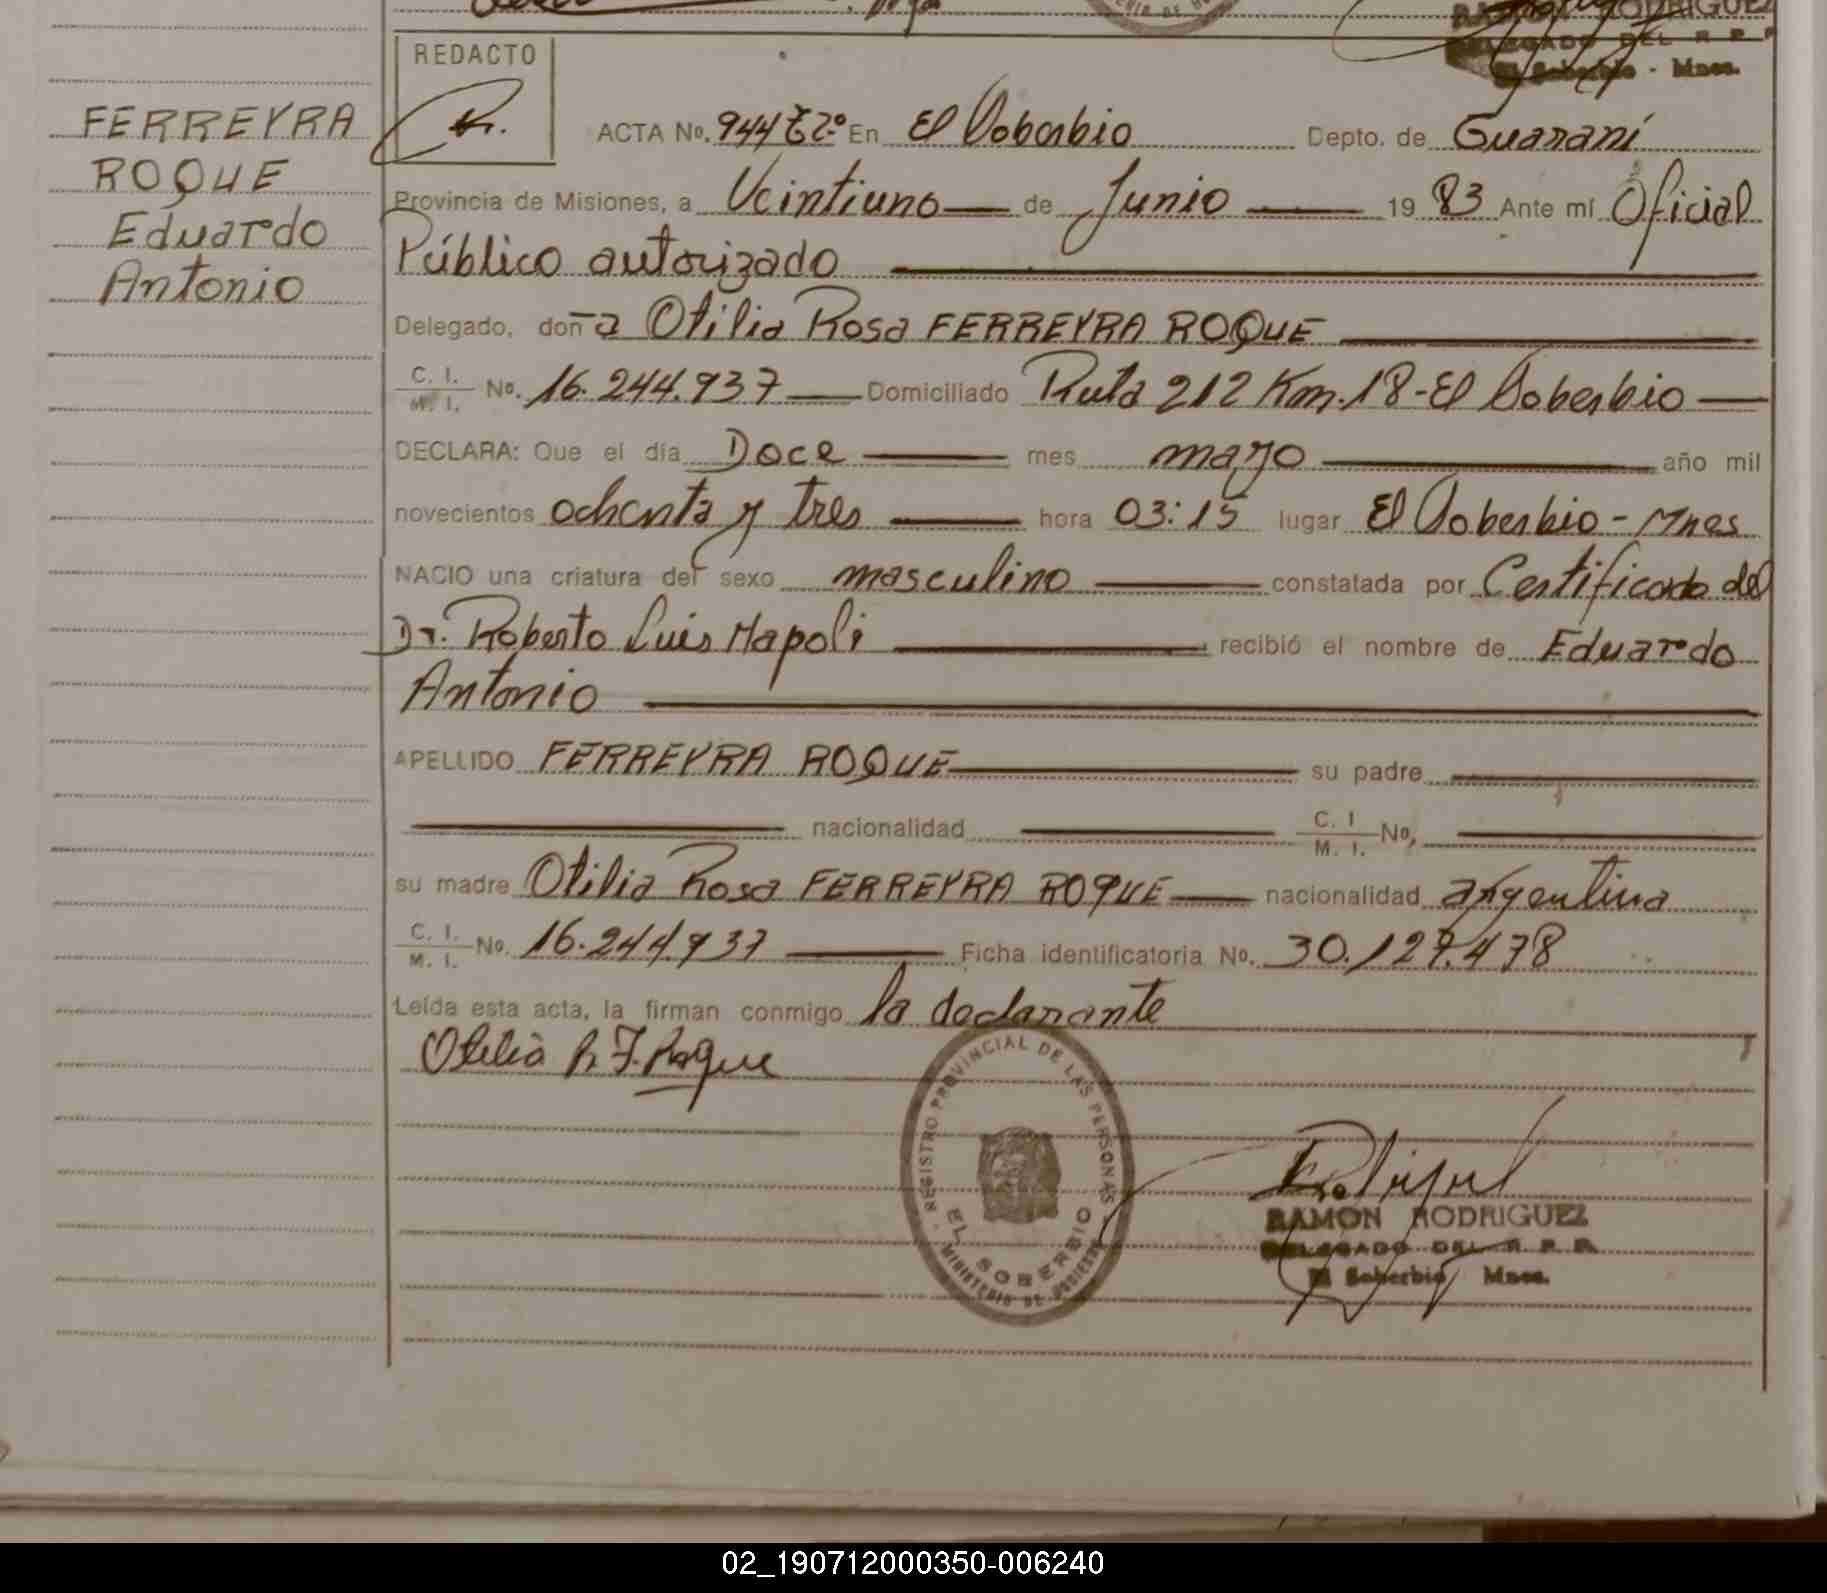 RODRIGUEZ
DELEGADO DEL R P P
El Soberbio - Mnes.
REDACTO
FERREYRA
ROQUE
Eduardo
Antonio
ACTA No. 944 Tº 2º En El Soberbio Depto. de Guaraní
Provincia de Misiones, a Veintiuno de Junio 19 83 Ante mí Oficial
Público autorizado
Delegado, doña Otilia Rosa FERREYRA ROQUE
C. I. M. I. No. 16.244.937 Domiciliado Ruta 212 Km.18-El Soberbio
DECLARA: Que el día Doce mes mayo año mil
novecientos ochenta y tres hora 03:15 lugar El Soberbio - Mnes
NACIO una criatura del sexo masculino constatada por Certificado del
Dr. Roberto Luis Napoli recibió el nombre de Eduardo
Antonio
APELLIDO FERREYRA ROQUE su padre
nacionalidad C. I M. I. No,
su madre Otilia Rosa FERREYRA ROQUE nacionalidad argentina
C. I. M. I. No. 16.244.937 Ficha identificatoria No. 30.127.478
Leída esta acta, la firman conmigo la declarante
Otilia R F. Roque
REGISTRO PROVINCIAL DE LAS PERSONAS
EL SOBERBIO
MINISTERIO DE GOBIERNO
RAMON RODRIGUEZ
DELEGADO DEL R. P. P.
El Soberbio Mnes.
02_190712000350-006240